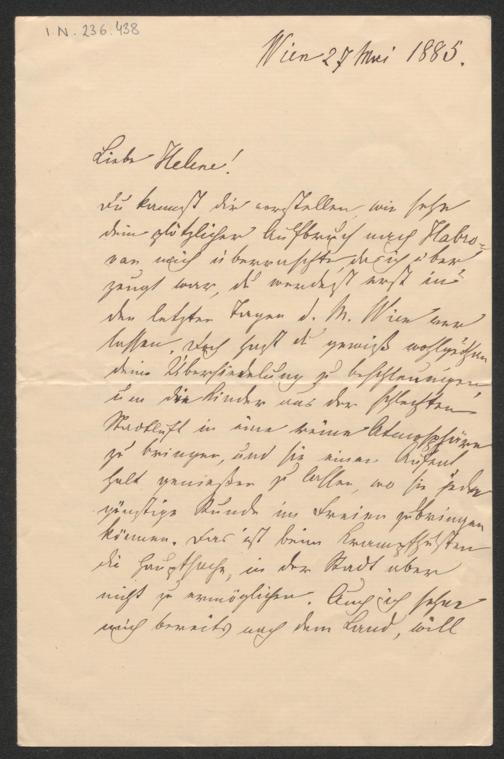 I.N. 236.438
Wien 27 Mai 1885.
Liebe Helene!
Du kannst dir vorstellen, wie sehr
dein plötzlicher Aufbruch nach Habro-
van mich überraschte, da ich über
zeugt war, du werdest erst in
den letzten Tagen d. M. Wien ver
lassen. Doch hast du gewiß wohlgethan
deine Übersiedelung zu beschleunigen,
um die Kinder aus der schlechten
Stadtluft in eine reine Atmosphäre
zu bringen, und sie einen Aufent
halt genießen zu lassen, wo sie jede
günstige Stunde im Freien zubringen
können. Das ist beim Krampfhusten
die Hauptsache, in der Stadt aber
nicht zu ermöglichen. Auch ich sehne
mich bereits nach dem Land, will